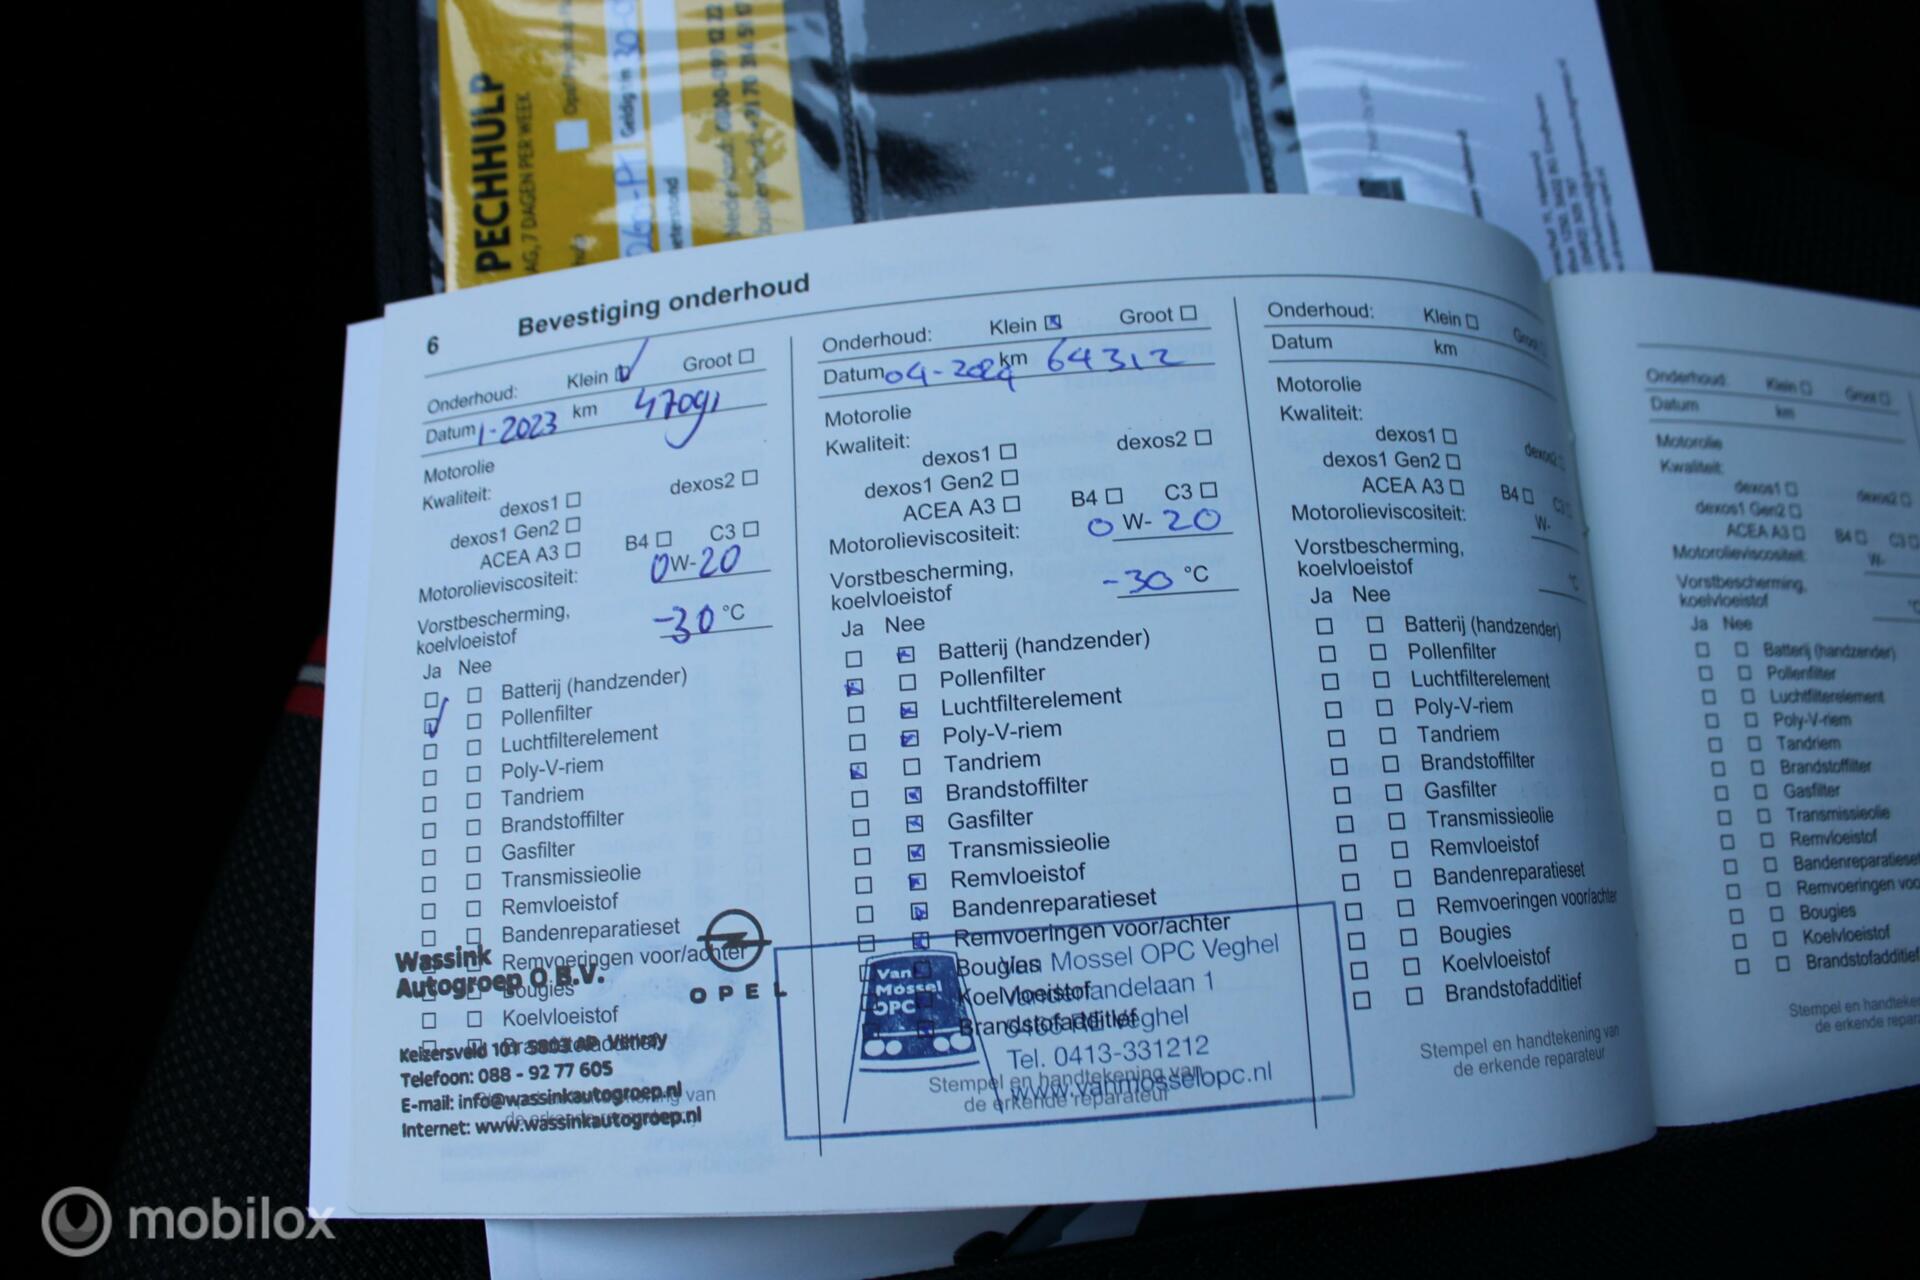 PECHHULP
AG, 7 DAGEN PER WEEK
Geldig t/m 30-
Nederland: 0800-099 12 22
6 Bevestiging onderhoud
Onderhoud: Klein Groot
Datum 1-2023 km 47091
Motorolie
Kwaliteit:
dexos1 dexos2
dexos1 Gen2
ACEA A3 B4 C3
Motorolieviscositeit: 0W-20
Vorstbescherming,
koelvloeistof -30 °C
Ja Nee
Batterij (handzender)
Pollenfilter
Luchtfilterelement
Poly-V-riem
Tandriem
Brandstoffilter
Gasfilter
Transmissieolie
Remvloeistof
Bandenreparatieset
Remvoeringen voor/achter
Bougies
Koelvloeistof
Brandstofadditief
Wassink
Autogroep O B.V.
OPEL
Keizersveld 101 5803 AP Venray
Telefoon: 088 - 92 77 605
E-mail: info@wassinkautogroep.nl
Internet: www.wassinkautogroep.nl
Onderhoud: Klein Groot
Datum 04-2024 km 64312
Motorolie
Kwaliteit:
dexos1 dexos2
dexos1 Gen2
ACEA A3 B4 C3
Motorolieviscositeit: 0 W- 20
Vorstbescherming,
koelvloeistof -30 °C
Ja Nee
Batterij (handzender)
Pollenfilter
Luchtfilterelement
Poly-V-riem
Tandriem
Brandstoffilter
Gasfilter
Transmissieolie
Remvloeistof
Bandenreparatieset
Remvoeringen voor/achter
Bougies
Koelvloeistof
Brandstofadditief
Stempel en handtekening van
de erkende reparateur
Van
Mossel
OPC
Van Mossel OPC Veghel
Veghel
Tel. 0413-331212
www.vanmosselopc.nl
Onderhoud: Klein Groot
Datum km
Motorolie
Kwaliteit:
dexos1 dexos2
dexos1 Gen2
ACEA A3 B4 C3
Motorolieviscositeit: W-
Vorstbescherming,
koelvloeistof °C
Ja Nee
Batterij (handzender)
Pollenfilter
Luchtfilterelement
Poly-V-riem
Tandriem
Brandstoffilter
Gasfilter
Transmissieolie
Remvloeistof
Bandenreparatieset
Remvoeringen voor/achter
Bougies
Koelvloeistof
Brandstofadditief
Stempel en handtekening van
de erkende reparateur
Onderhoud: Klein Groot
Datum km
Motorolie
Kwaliteit:
dexos1 dexos2
dexos1 Gen2
ACEA A3 B4 C3
Motorolieviscositeit: W-
Vorstbescherming,
koelvloeistof °C
Ja Nee
Batterij (handzender)
Pollenfilter
Luchtfilterelement
Poly-V-riem
Tandriem
Brandstoffilter
Gasfilter
Transmissieolie
Remvloeistof
Bandenreparatieset
Remvoeringen voo
Bougies
Koelvloeistof
Brandstofadditief
Stempel en handteken
de erkende repara
mobilox